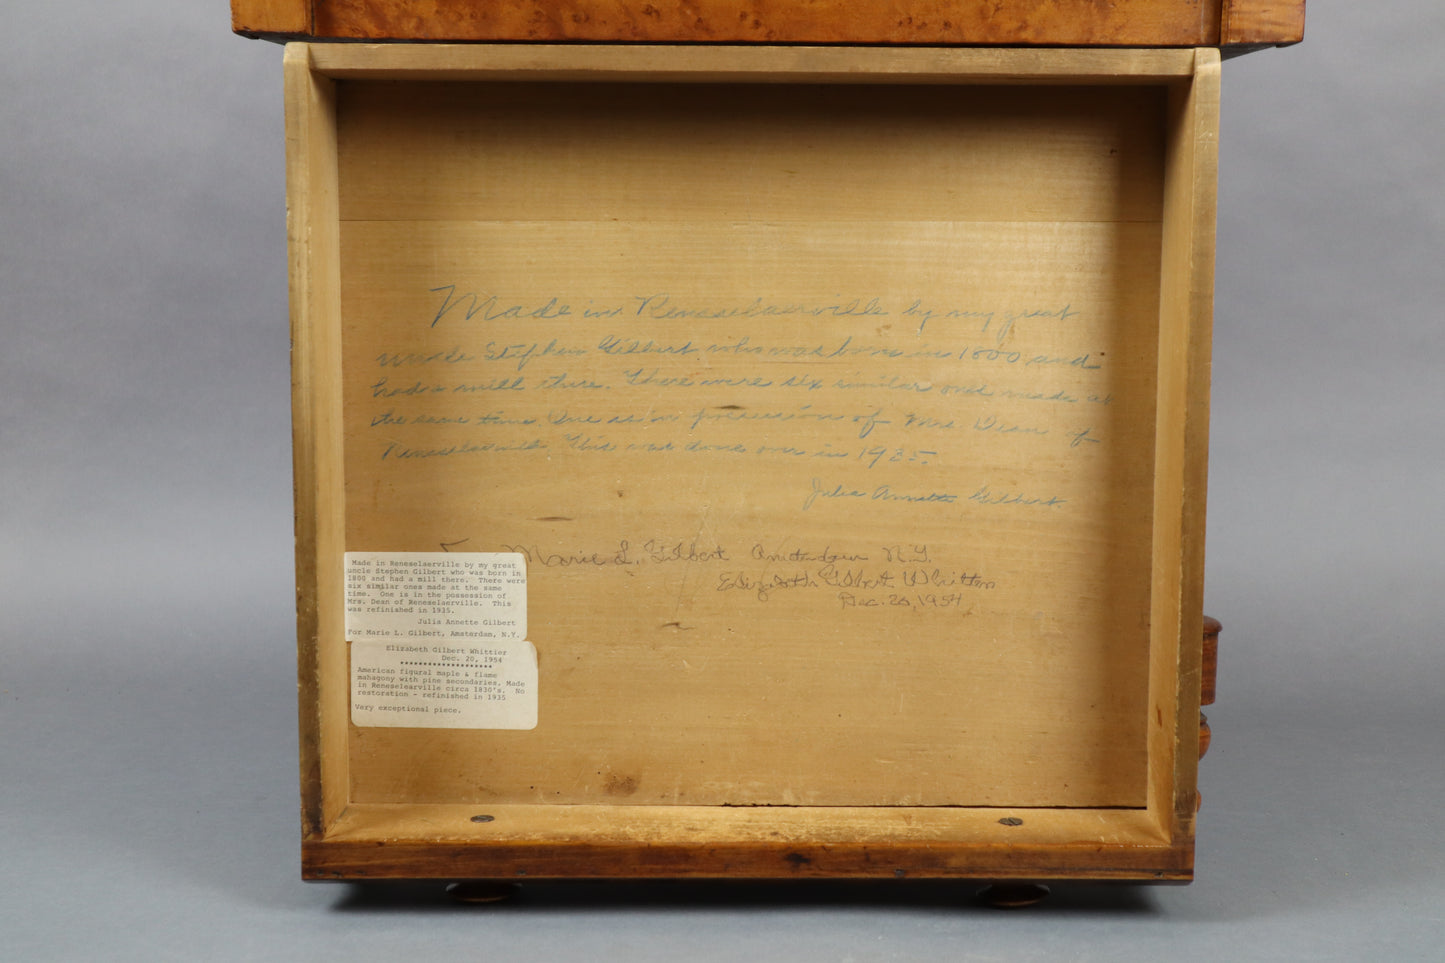 Made in Rensselaerville by my great
uncle Stephen Gilbert who was born in 1800 and
had a mill there. There were six similar ones made at
the same time. One is in possession of Mrs. Dean of
Rensselaerville This was done over in 1935.
Julia Annette Gilbert.
For Marie L. Gilbert Amsterdam N.Y.
Elizabeth Gilbert Whittier
Dec. 20, 1954
Made in Reneselaerville by my great
uncle Stephen Gilbert who was born in
1800 and had a mill there. There were
six similar ones made at the same
time. One is in the possession of
Mrs. Dean of Reneselaerville. This
was refinished in 1935.
Julia Annette Gilbert
For Marie L. Gilbert, Amsterdam, N.Y.
Elizabeth Gilbert Whittier
Dec. 20, 1954
********************
American figural maple & flame
mahagony with pine secondaries. Made
in Reneselearville circa 1830's. No
restoration - refinished in 1935
Very exceptional piece.